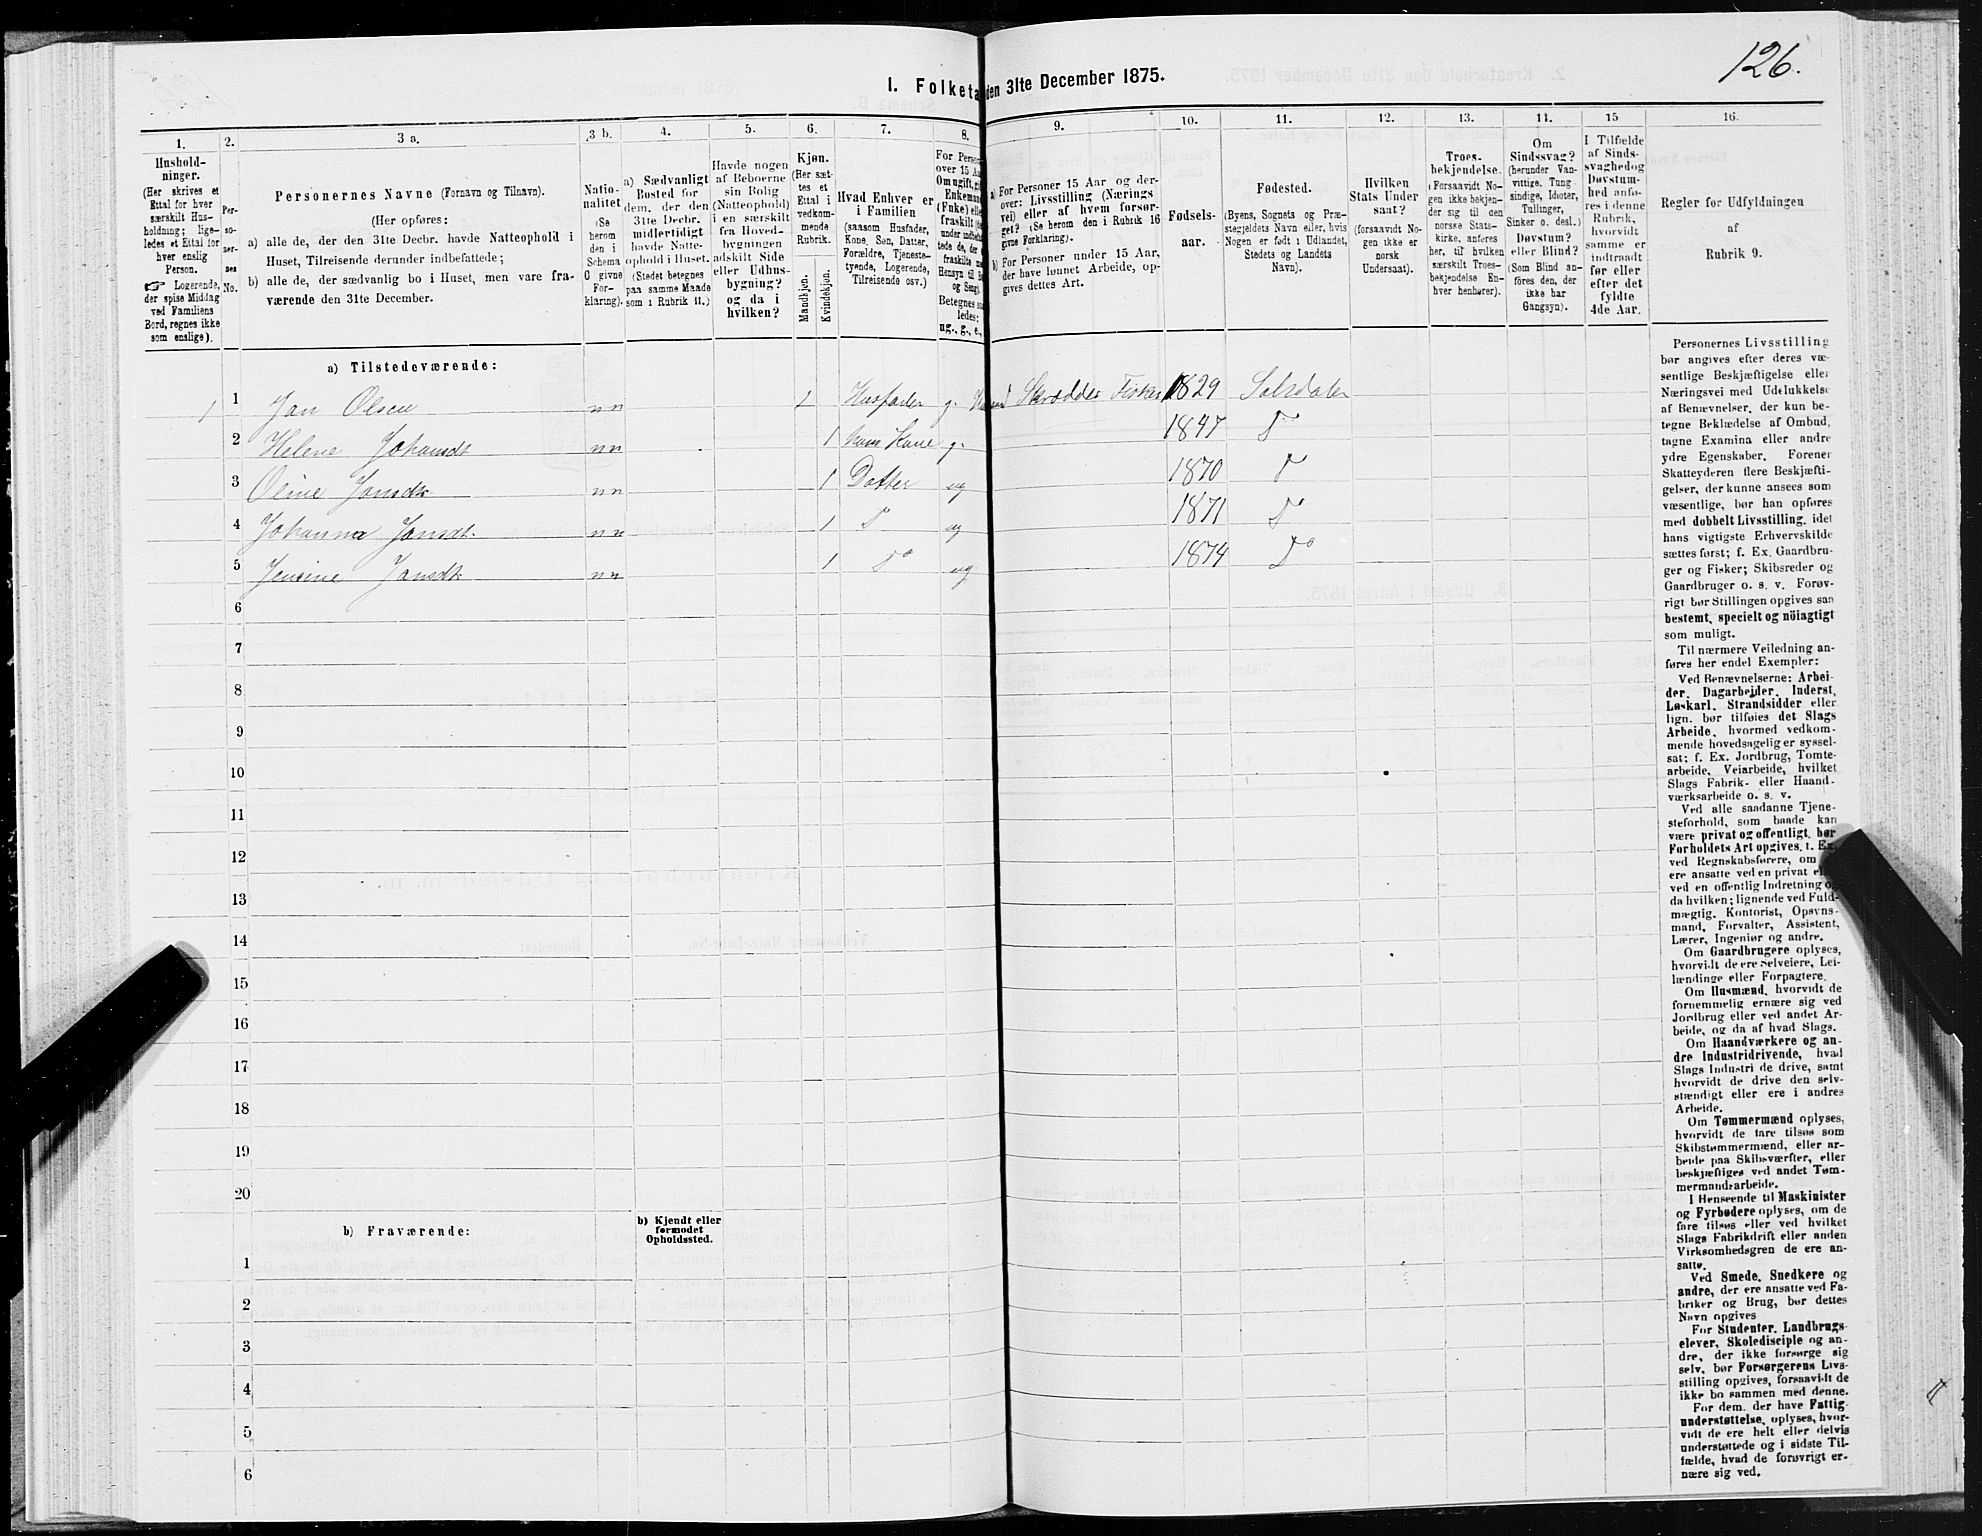 126.
1. Folketæ den 31te December 1875.
1. 2. 3 a. 3 b. 4. 5. 6. 7. 8. 9. 10. 11. 12. 13. 14. 15 16.
Hushold-
ninger.
(Her skrives et
Ettal for hver
særskilt Hus-
holdning; lige-
ledes et Ettal for
hver enslig
Person.
☞ Logerende,
der spise Middag
ved Familiens
Bord, regnes ikke
som enslige).
Per-
so-
ner-
nes
No.
Personernes Navne (Fornavn og Tilnavn).
(Her opføres:
a) alle de, der den 31te Decbr. havde Natteophold i
Huset, Tilreisende derunder indbefattede;
b) alle de, der sædvanlig bo i Huset, men vare fra-
værende den 31te December.
Natio-
nalitet
(Se
herom
den i
Schema
C givne
For-
klaring).
a) Sædvanligt
Bosted for
dem, der den
31te Decbr.
midlertidigt
havde Natte-
ophold i Huset.
(Stedet betegnes
paa samme Maade
som i Rubrik 11.)
Havde nogen
af Beboerne
sin Bolig
(Natteophold)
i en særskilt
fra Hoved-
bygningen
adskilt Side
eller Udhus-
bygning?
og da i
hvilken?
Kjøn.
(Her sæt-
tes et
Ettal i
vedkom-
mende
Rubrik.
Mandkjøn.
Kvindekjøn.
Hvad Enhver er
i Familien
(saasom Husfader,
Kone, Søn, Datter,
Forældre, Tjeneste-
tyende, Logerende,
Tilreisende osv.)
For Person
over 15 Aa
Om ugift, gi
Enkeman
(Enke) elle
fraskilt
under indbe
tede de, der
fraskilte
Hensyn til B
og Seng).
Betegnes saa
ledes:
ug., g., e.,
a) For Personer 15 Aar og der-
over: Livsstilling (Nærings
vei) eller af hvem forsør-
get? (Se herom i Rubrik 16
givne Forklaring).
b) For Personer under 15 Aar,
der have lønnet Arbeide, op-
gives dettes Art.
Fødsels-
aar.
Fødested.
(Byens, Sognets og Præ-
stegjeldets Navn eller, hvis
Nogen er født i Udlandet,
Stedets og Landets
Navn).
Hvilken
Stats Under
saat?
(forsaavidt No-
gen ikke er
norsk
Undersaat).
Troes-
bekjendelse.
(Forsaavidt No-
gen ikke bekjen-
der sig til den
norske Stats-
kirke, anføres
her, til hvilken
særskilt Troes-
bekjendelse En-
hver henhører).
Om
Sindssvag?
(herunder Van-
vittige, Tung-
sindige, Idioter,
Tullinger,
Sinker o. desl.)
Døvstum?
eller Blind?
(Som Blind an-
føres den, der
ikke har
Gangsyn).
I Tilfælde
af Sinds-
svaghed og
Døvstum-
hed anfø-
res i denne
Rubrik,
hvorvidt
samme er
indtraadt
før eller
efter det
fyldte
4de Aar.
Regler for Udfyldningen
af
Rubrik 9.
a) Tilstedeværende:
1 1 Jan Olsen nn 1 Husfader g. Skrædder Fisker 1829 Salsdalen
2 Helene Johansdt nn 1 hans Kone g. 1847 D
3 Oline Jansdtr nn 1 Datter ug 1870 D
4 Johanna Jansdt. nn 1 D ug 1871 D
5 Jensine Jansdt. nn 1 Do ug 1874 Do
6
7
8
9
10
11
12
13
14
15
16
17
18
19
20
b) Fraværende:
b) Kjendt eller
formodet
Opholdssted.
1
2
3
4
5
6
Personernes Livsstilling
bør angives efter deres væ-
sentlige Beskjæftigelse eller
Næringsvei med Udelukkelse
af Benævnelser, der kun be-
tegne Beklædelse af Ombud,
tagne Examina eller andre
ydre Egenskaber. Forener
Skatteyderen flere Beskjæfti-
gelser, der kunne ansees som
væsentlige, bør han opføres
med dobbelt Livsstilling, idet
hans vigtigste Erhvervskilde
sættes først; f. Ex. Gaardbru-
ger og Fisker; Skibsreder og
Gaardbruger o. s. v. Forøv-
rigt bør Stillingen opgives saa
bestemt, specielt og nöiagtigt
som muligt.
Til nærmere Veiledning an-
føres her endel Exempler:
Ved Benævnelserne: Arbei-
der, Dagarbejder, Inderst,
Løskarl, Strandsidder eller
lign. bør tilføies det Slags
Arbeide, hvormed vedkom-
mende hovedsagelig er syssel-
sat; f. Ex. Jordbrug, Tomte-
arbeide, Veiarbeide, hvilket
Slags Fabrik- eller Haand-
værksarbeide o. s. v.
Ved alle saadanne Tjene-
steforhold, som baade kan
være privat og offentligt, bør
Forholdets Art opgives, t. Ex.
ved Regnskabsførere, om
ere ansatte ved en privat el
ved en offentlig Indretning og
da hvilken; lignende ved Fuld-
mægtig, Kontorist, Opsyns-
mand, Forvalter, Assistent,
Lærer, Ingeniør og andre.
Om Gaardbrugere oplyses,
hvorvidt de ere Selveiere, Lei-
lændinge eller Forpagtere.
Om Husmænd, hvorvidt de
fornemmelig ernære sig ved
Jordbrug eller ved andet Ar-
beide, og da af hvad Slags.
Om Haandværkere og an-
dre Industridrivende, hvad
Slags Industri de drive, samt
hvorvidt de drive den selv-
stændigt eller ere i andres
Arbeide.
Om Tømmermænd oplyses,
hvorvidt de fare tilsøs som
Skibstømmermænd, eller ar-
beide paa Skibsværfter, eller
beskjæftiges ved andet Tøm-
mermandsarbeide.
I Henseende til Maskinister
og Fyrbødere oplyses, om de
fare tilsøs eller ved hvilket
Slags Fabrikdrift eller anden
Virksomhedsgren de ere an-
satte.
Ved Smede, Snedkere og
andre, der ere ansatte ved Fa-
briker og Brug, bør dettes
Navn opgives
For Studenter, Landbrugs-
elever, Skoledisciple og an-
dre, der ikke forsørge sig
selv, bør Forsørgerens Livs-
stilling opgives, forsaavidt de
ikke bo sammen med denne.
For dem, der have Fattig-
understøttelse, oplyses, hvor-
vidt de ere helt eller delvis
understøttede og i sidste Til-
fælde, hvad de forøvrigt er-
nære sig ved.